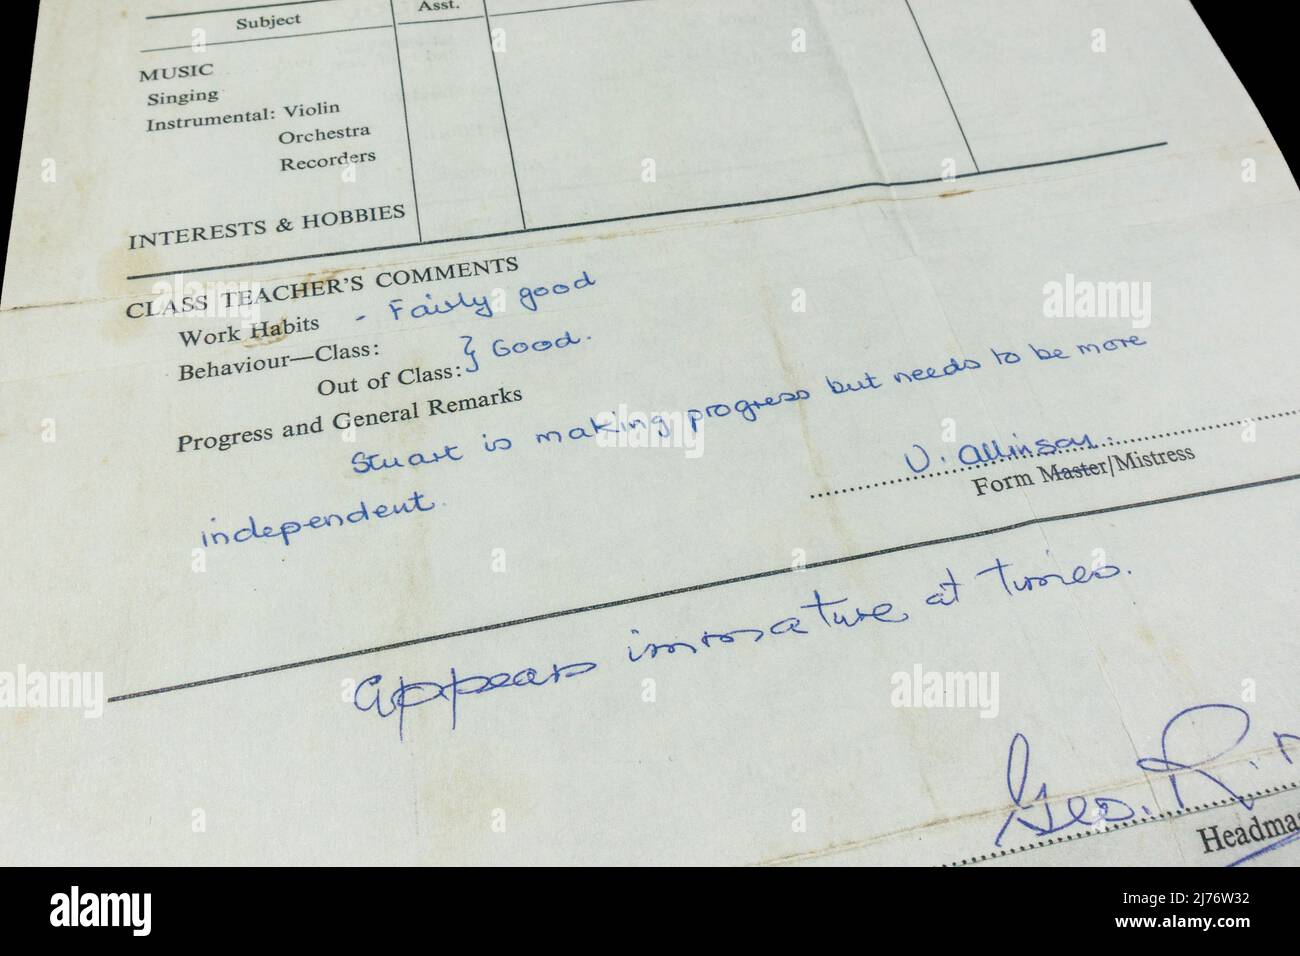 Subject Asst.
MUSIC
Singing
Instrumental: Violin
Orchestra
Recorders
INTERESTS & HOBBIES
CLASS TEACHER'S COMMENTS
Work Habits - Fairly good
Behaviour—Class:
Out of Class: } Good.
Progress and General Remarks
Stuart is making progress but needs to be more
independent.
V. Allinson.
Form Master/Mistress
Appears immature at times.
Geo. R.
Headmas
alamy
Image ID: 2J76W32
www.alamy.com